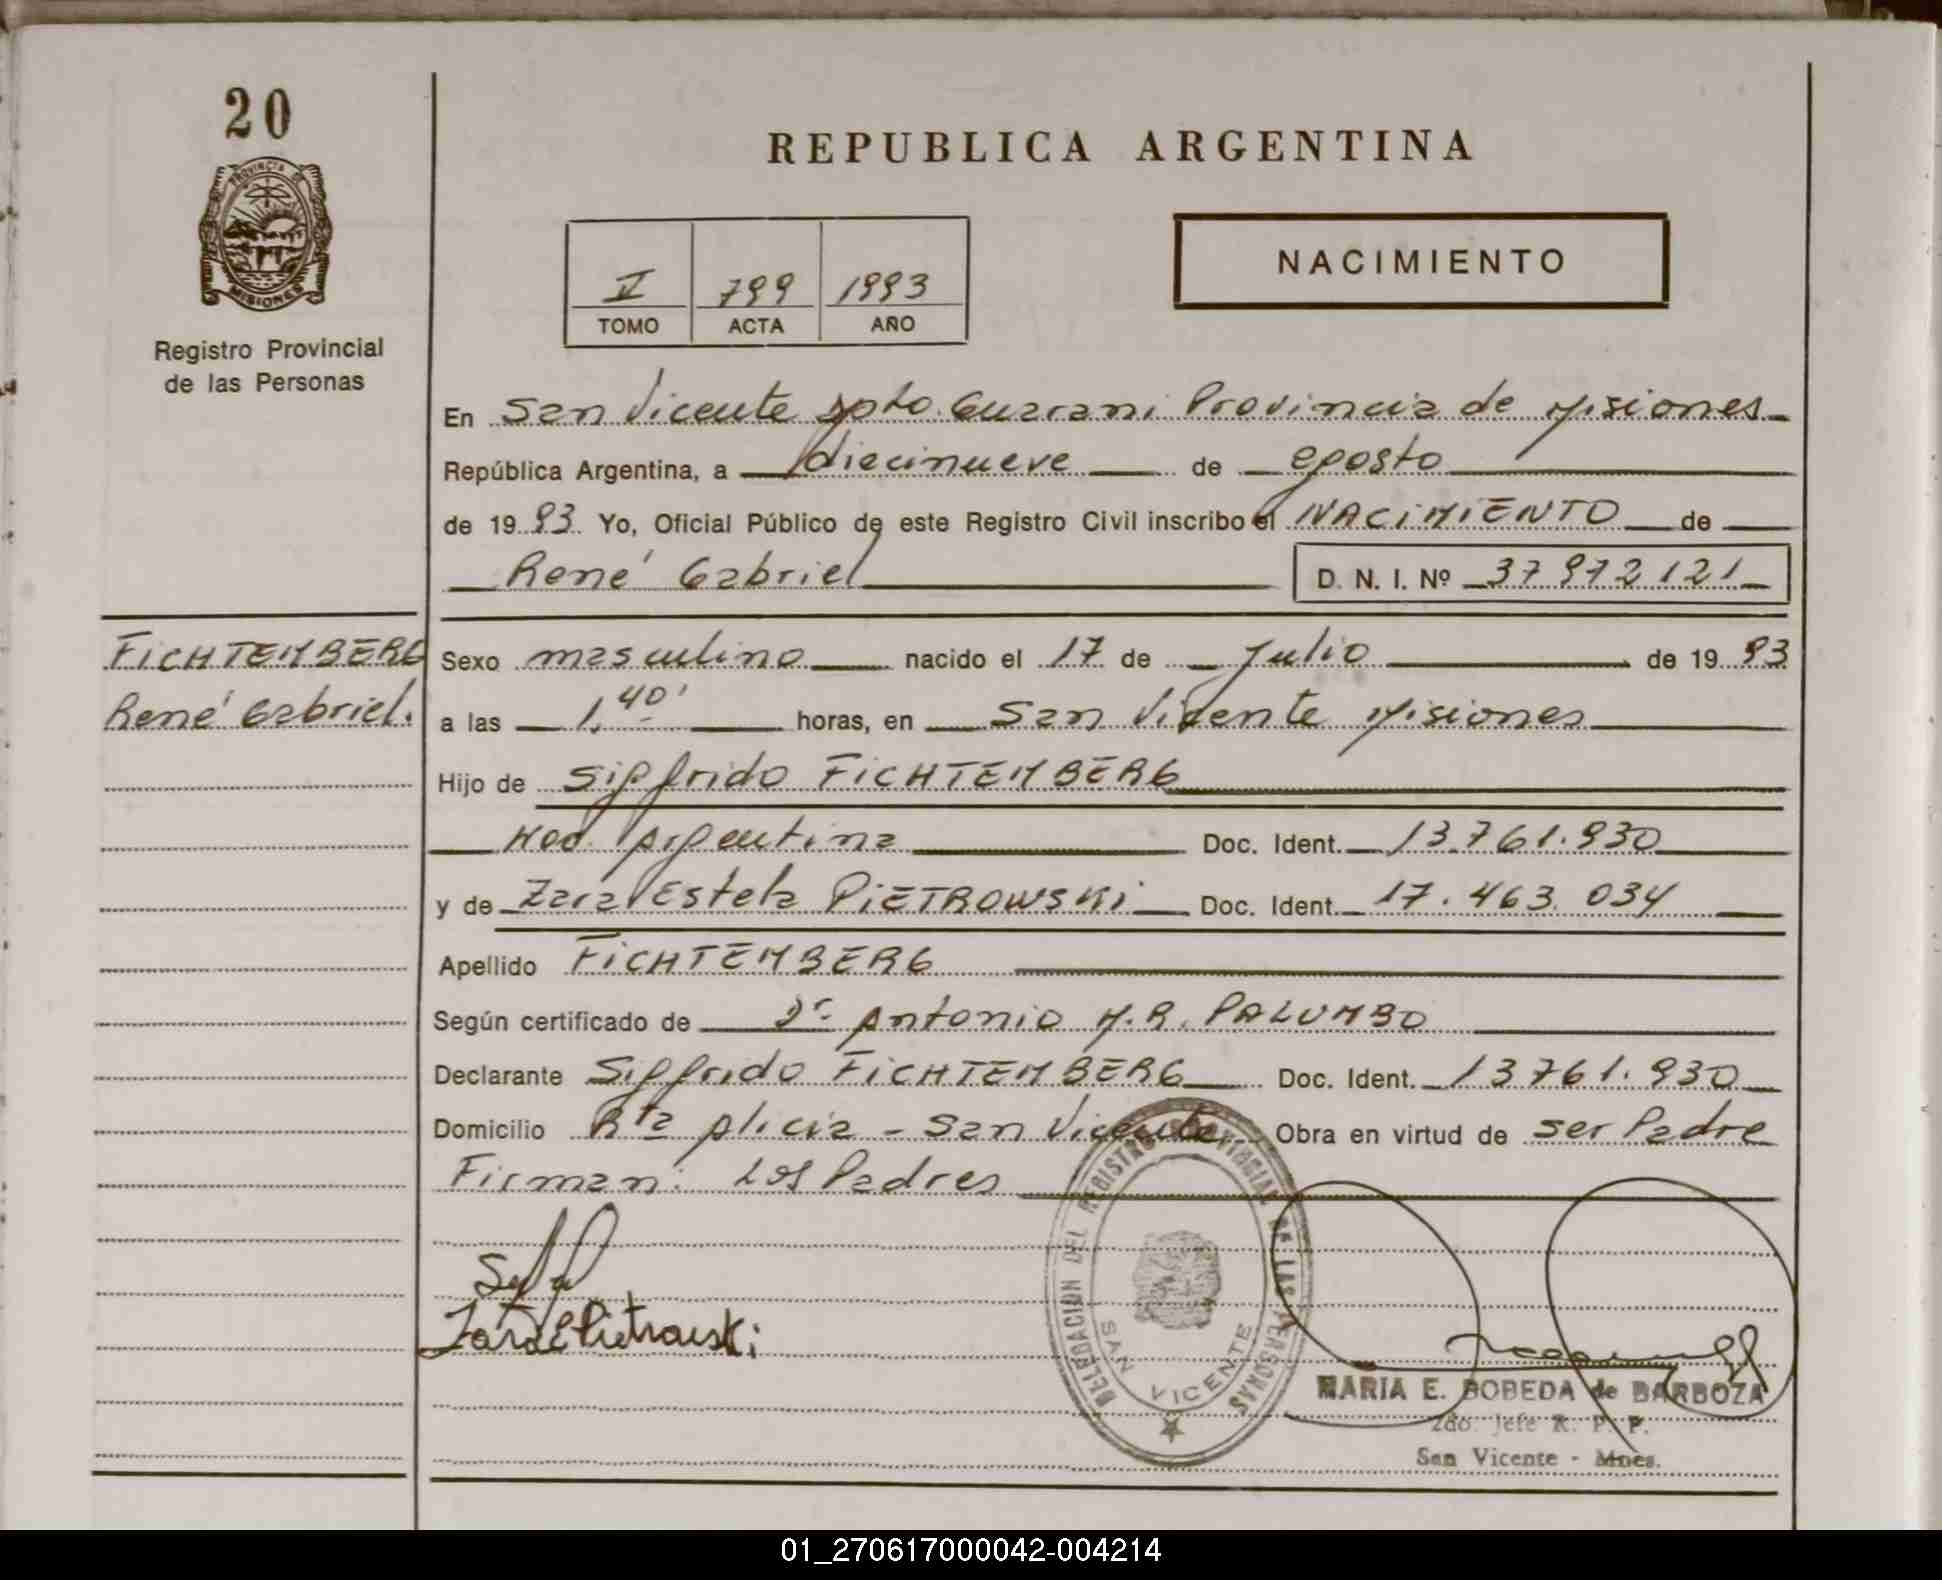 20
PROVINCIA DE
MISIONES
Registro Provincial
de las Personas
REPUBLICA ARGENTINA
V 799 1993
TOMO ACTA AÑO
NACIMIENTO
En San Vicente Dpto. Guarani Provincia de Misiones
República Argentina, a diecinueve de agosto
de 19 93 Yo, Oficial Público de este Registro Civil inscribo el NACIMIENTO de
René Gabriel D. N. I. Nº 37972121
FICHTEMBERG
René Gabriel.
Sexo masculino nacido el 17 de Julio de 19 93
a las 1,40' horas, en San Vicente Misiones
Hijo de Sigfrido FICHTEMBERG
Nad. Argentina Doc. Ident. 13.761.930
y de Zara Estela PIETROWSKI Doc. Ident. 17.463.034
Apellido FICHTEMBERG
Según certificado de Dr. Antonio M.R. PALUMBO
Declarante Sigfrido FICHTEMBERG Doc. Ident. 13761.930
Domicilio Rta Alicia - San Vicente Obra en virtud de ser Padre
Firman: Los Padres
Zara E Pietrowski
DELEGACION DEL REGISTRO PROVINCIAL DE LAS PERSONAS
SAN VICENTE
MARIA E. BOBEDA de BARBOZA
2do. Jefe R. P. P.
San Vicente - Mnes.
01_270617000042-004214